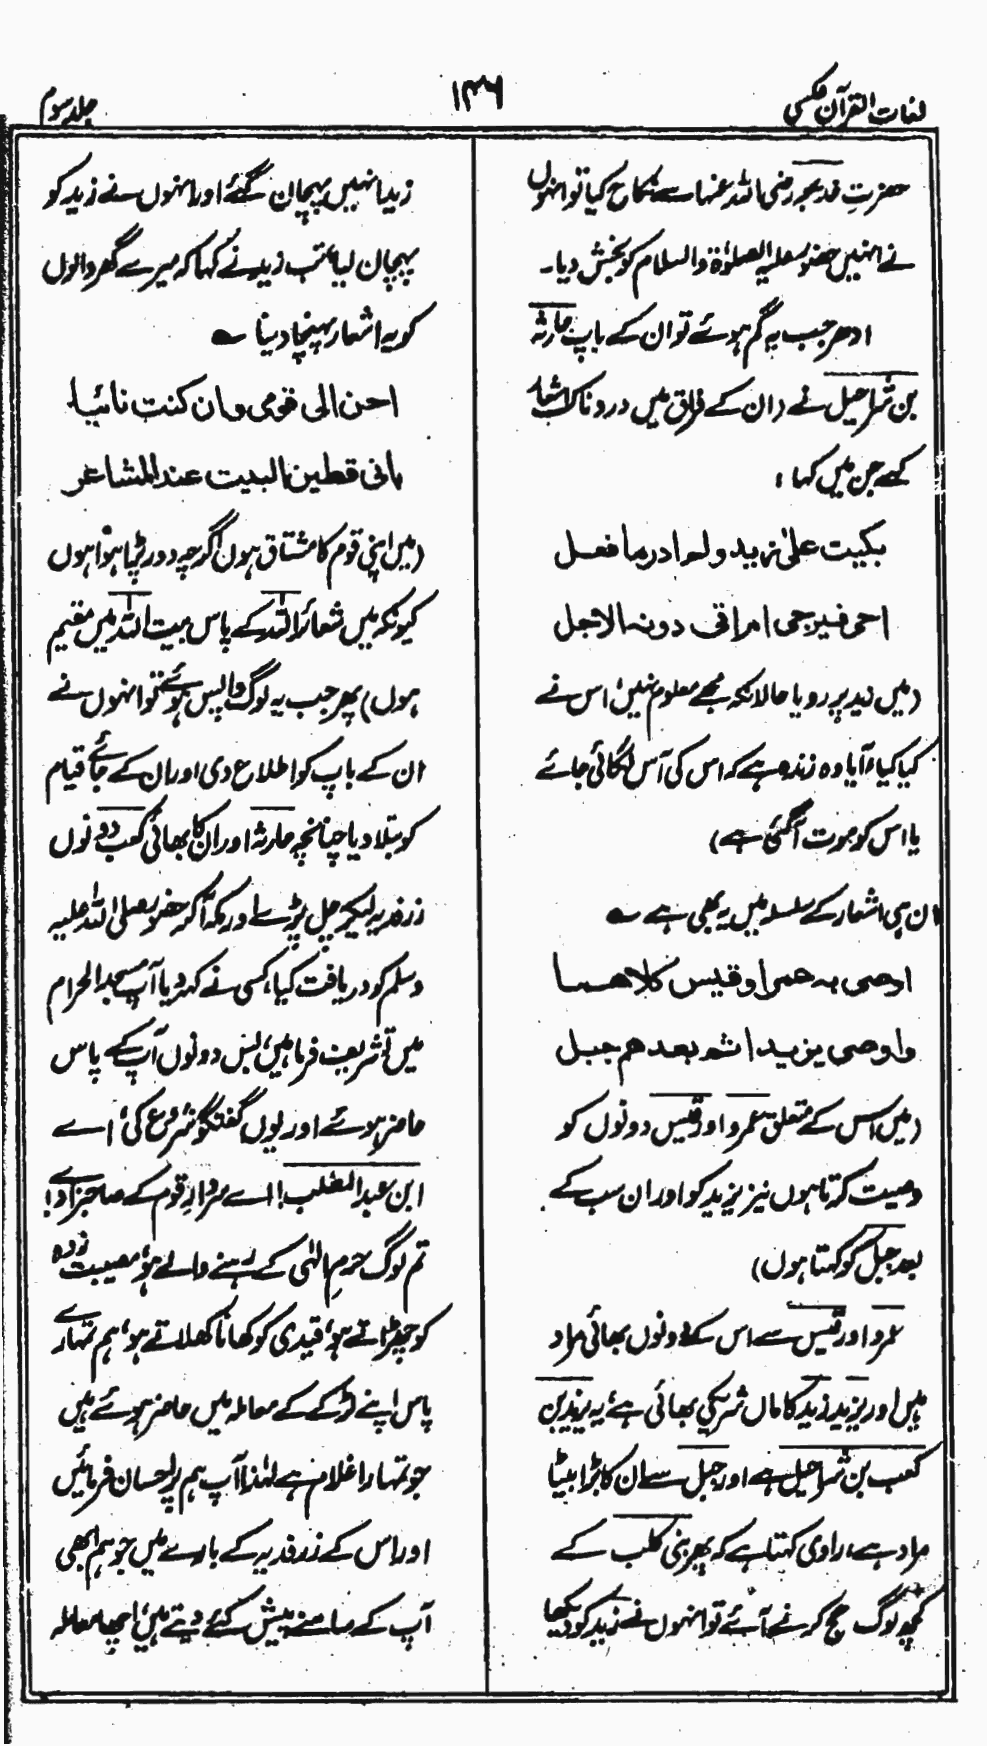 لغات القرآن عکسی
۱۴۶
جلد سوم
حضرتِ خدیجہ رضی اللہ عنہا سے نکاح کیا تو انہوں
نے انہیں حضور علیہ الصلوٰۃ والسلام کو بخش دیا۔
ادھر جب یہ گم ہوئے تو ان کے باپ حارثہ
بن شراحیل نے ان کے فراق میں دردناک اشعار
کہے جن میں کہا :
بکیت علیٰ زید ولم ادر ما فعل
احی فیرجی ام اتی دونہ الاجل
(میں زید پر رویا حالانکہ مجھے معلوم نہیں، اس نے
کیا کیا، آیا وہ زندہ ہے کہ اس کی آس لگائی جائے
یا اس کو موت آگئی ہے)
ان ہی اشعار کے سلسلہ میں یہ بھی ہے ؎
اوصی بہ عمرا وقیس کلاھما
واوصی یزیدا ثم بعدھم جبل
(میں اس کے متعلق عمرو اور قیس دونوں کو
وصیت کرتا ہوں نیز یزید کو اور ان سب کے
بعد جبل کو کہتا ہوں)
عمرو اور قیس سے اس کے دونوں بھائی مراد
ہیں اور یزید زید کا ماں شریکی بھائی ہے، یہ یزید بن
کعب بن شراحیل ہے اور جبل سے ان کا بڑا بیٹا
مراد ہے، راوی کہتا ہے کہ پھر بنی کلب کے
کچھ لوگ حج کرنے آئے تو انہوں نے زید کو دیکھا
زید انہیں پہچان گئے اور انہوں نے زید کو
پہچان لیا تب زید نے کہا کہ میرے گھر والوں
کو یہ اشعار پہنچا دینا ؎
احن الی قومی وان کنت نائیا
بانی قطین البیت عند المشاعر
(میں اپنی قوم کا مشتاق ہوں اگرچہ دور پڑا ہوا ہوں
کیونکہ میں شعائر اللہ کے پاس بیت اللہ میں مقیم
ہوں) پھر جب یہ لوگ واپس ہوئے تو انہوں نے
ان کے باپ کو اطلاع دی اور ان کے جائے قیام
کو بتلا دیا چنانچہ حارثہ اور ان کا بھائی کعب دونوں
زرفدیہ لیکر چل پڑے اور مکہ آکر حضور صلی اللہ علیہ
وسلم کو دریافت کیا، کسی نے کہہ دیا آپ مسجد الحرام
میں تشریف فرما ہیں، بس دونوں آپ کے پاس
حاضر ہوئے اور یوں گفتگو شروع کی، اے
ابن عبدالمطلب! اے سردارِ قوم کے صاحبزادے!
تم لوگ حرمِ الٰہی کے رہنے والے ہو، مصیبت زدہ
کو چھڑاتے ہو، قیدی کو کھانا کھلاتے ہو، ہم تمہارے
پاس اپنے لڑکے کے معاملہ میں حاضر ہوئے ہیں
جو تمہارا غلام ہے لہٰذا آپ ہم پر احسان فرمائیں
اور اس کے زرفدیہ کے بارے میں جو ہم ابھی
آپ کے سامنے پیش کئے دیتے ہیں، اچھا معاملہ